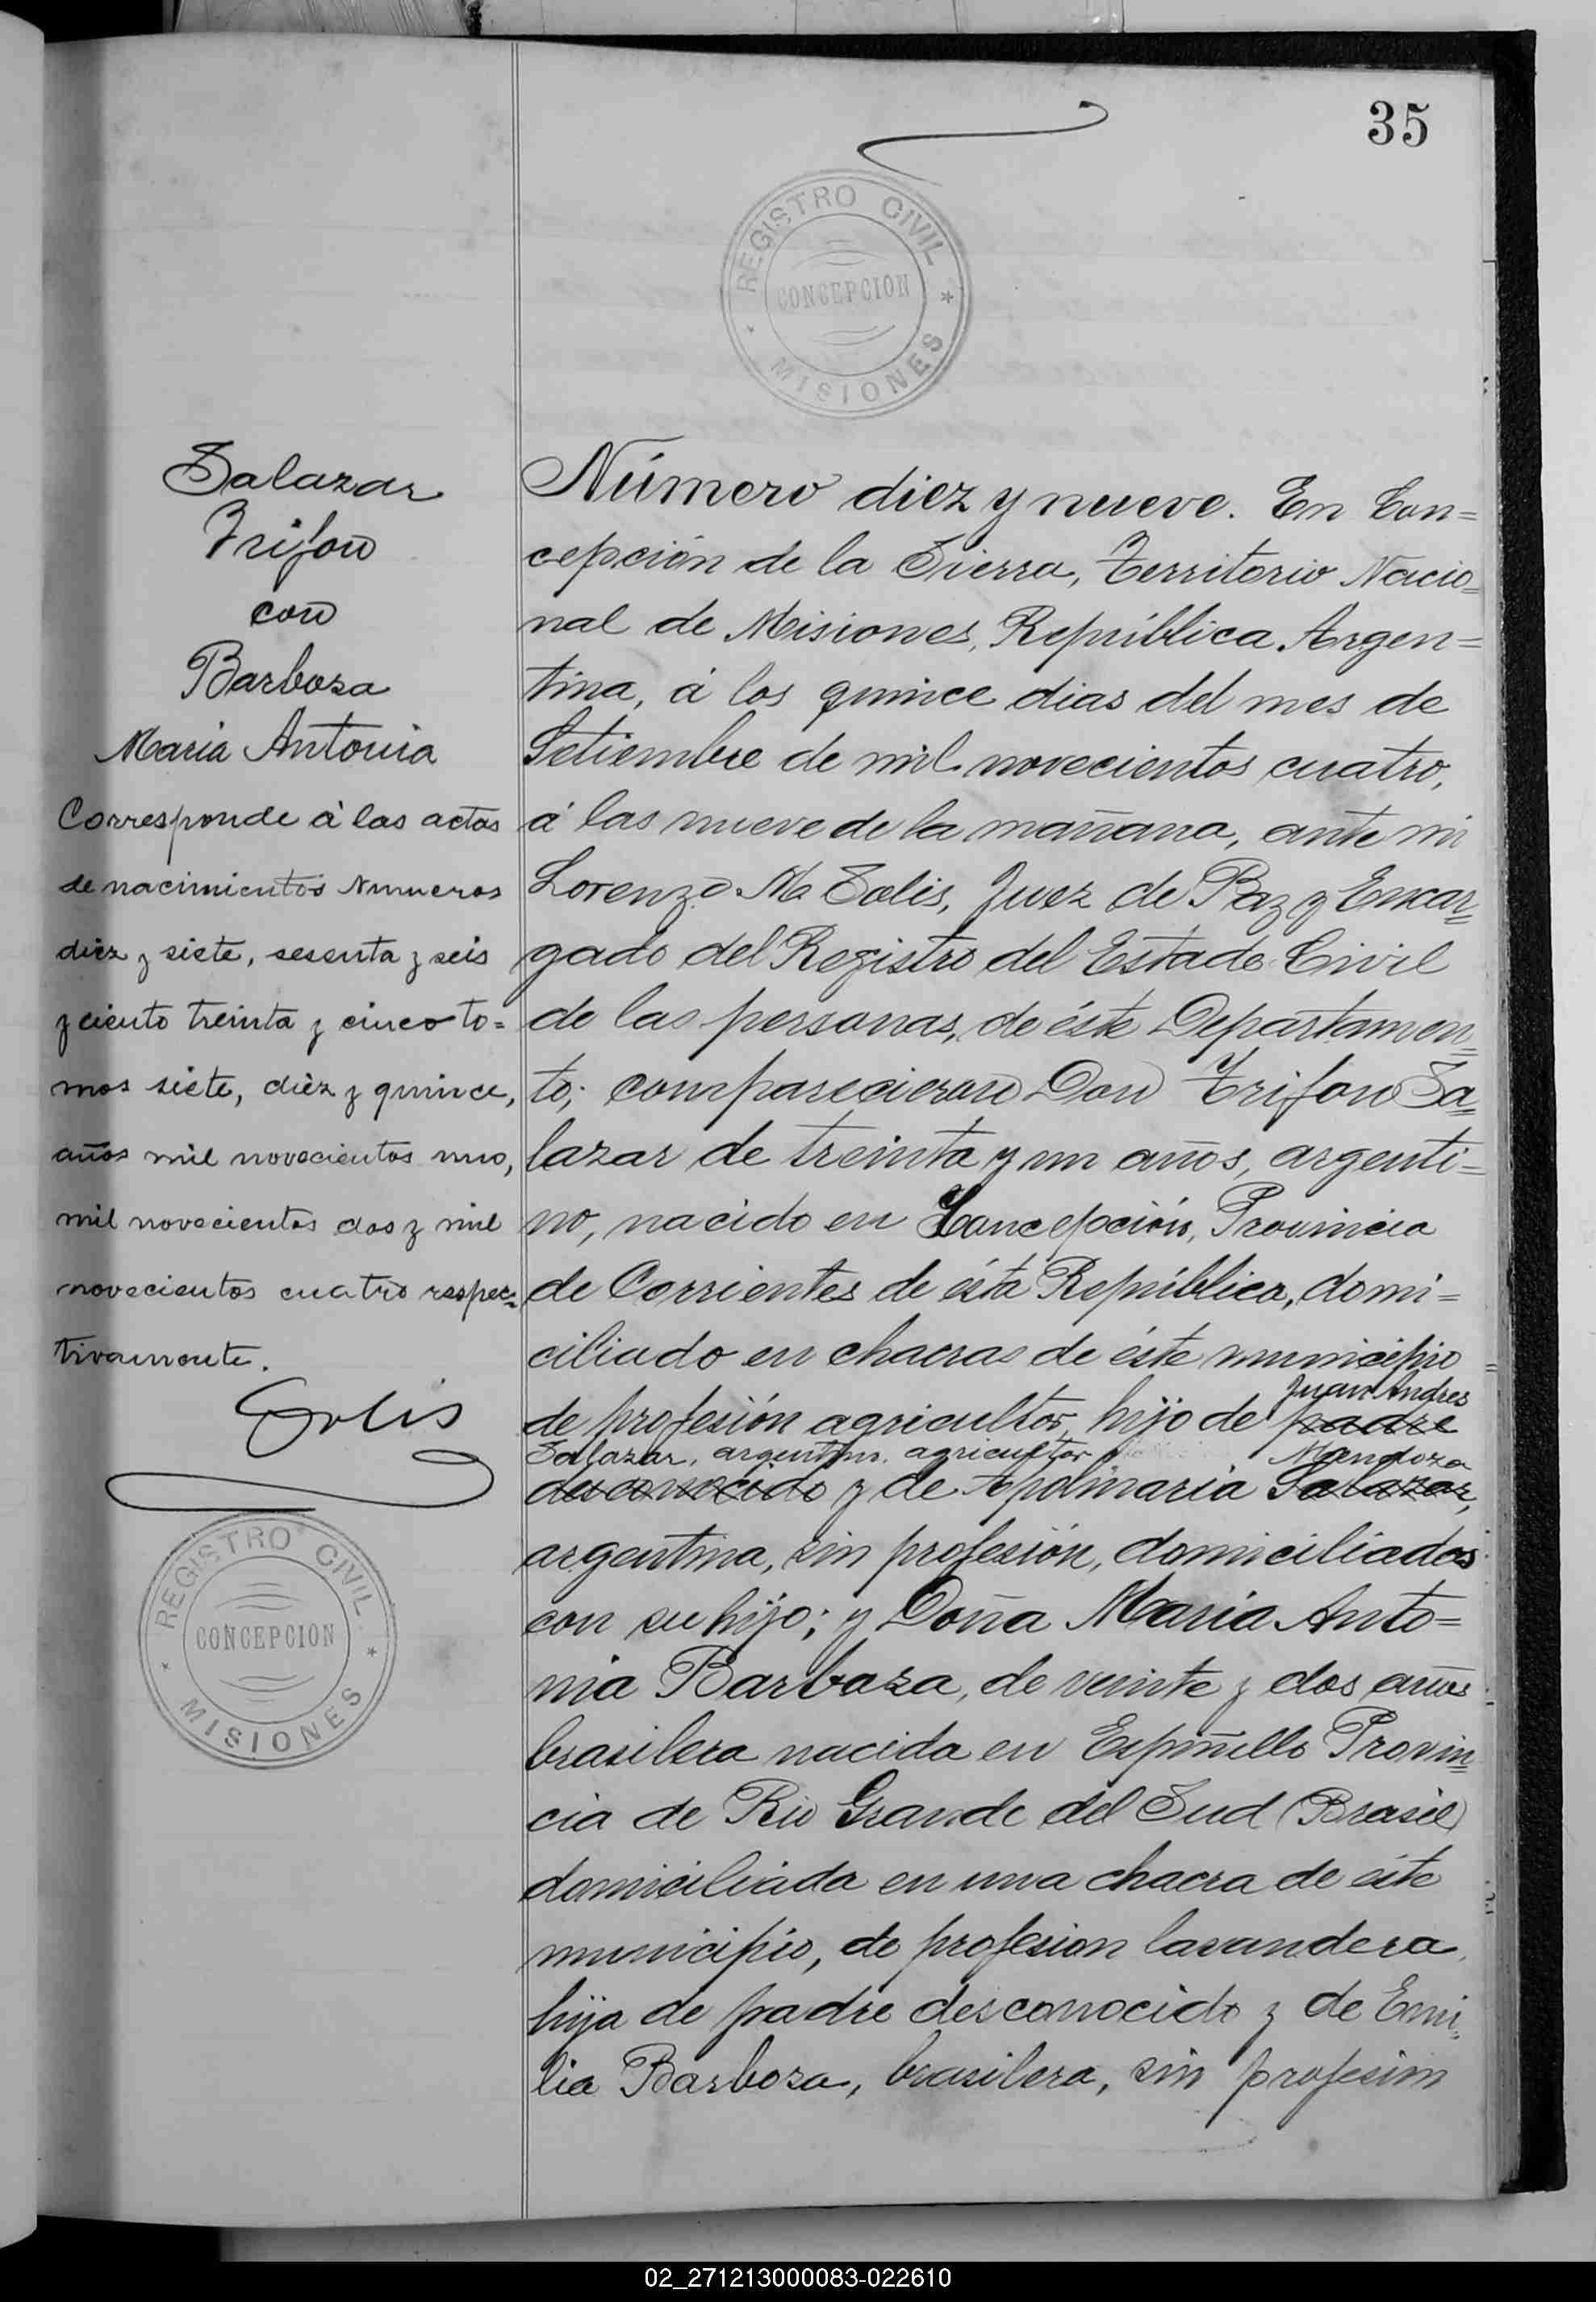 35
REGISTRO CIVIL
CONCEPCION
MISIONES
Salazar
Trifon
con
Barboza
Maria Antonia
Corresponde á las actas
de nacimientos Numeros
diez y siete, sesenta y seis
y ciento treinta y cinco to=
mos siete, diez y quince,
años mil novecientos uno,
mil novecientos dos y mil
novecientos cuatro respec=
tivamente.
Solis
REGISTRO CIVIL
CONCEPCION
MISIONES
Número diez y nueve. En Con=
cepción de la Sierra, Territorio Nacio=
nal de Misiones, República Argen=
tina, á los quince dias del mes de
Setiembre de mil novecientos cuatro,
á las nueve de la mañana, ante mi
Lorenzo M. Solis, Juez de Paz y Encar=
gado del Registro del Estado Civil
de las personas, de éste Departamen=
to; comparecieron Don Trifon Sa=
lazar de treinta y un años, argenti=
no, nacido en Concepción, Provincia
de Corrientes de ésta República, domi=
ciliado en chacras de éste municipio
Juan Andres
de profesión agricultor, hijo de padre
Salazar, argentino, agricultor Mendoza
desconocido y de Apolinaria Salazar,
argentina, sin profesión, domiciliados
con su hijo; y Doña Maria Anto=
nia Barboza, de veinte y dos años
brasilera nacida en Espinillo Provin=
cia de Rio Grande del Sud (Brasil)
domiciliada en una chacra de éste
municipio, de profesion lavandera,
hija de padre desconocido y de Emi=
lia Barboza, brasilera, sin profesion
02_271213000083-022610